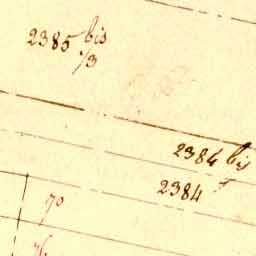 2385 bis
/3
2384 bis
2384
70